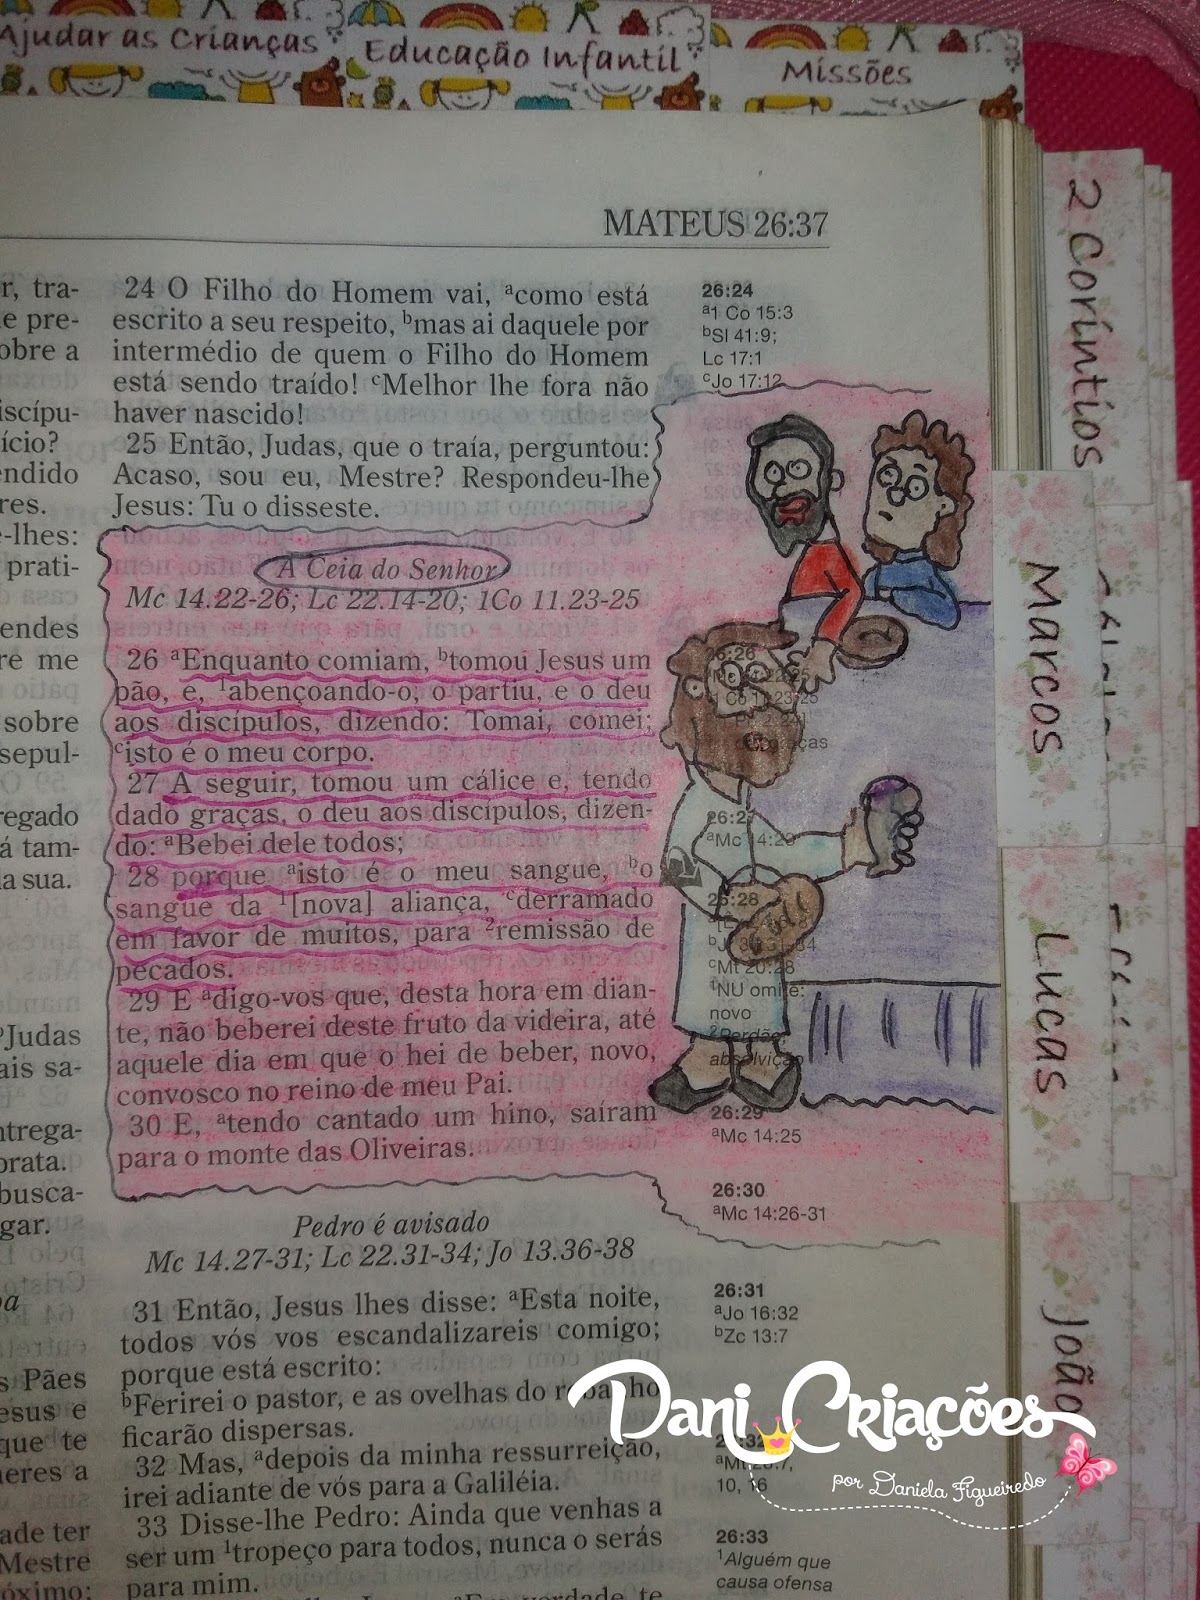 Ajudar as Crianças
Educação Infantil
Missões
MATEUS 26:37
r, tra-
e pre-
obre a
iscípu-
ício?
endido
res.
e-lhes:
prati-
endes
re me
sobre
sepul-
regado
á tam-
a sua.
Judas
ais sa-
ntrega-
prata.
busca-
gar.
s Pães
esus e
que te
heres a
ade ter
Mestre
óximo;
24 O Filho do Homem vai, ᵃcomo está
escrito a seu respeito, ᵇmas ai daquele por
intermédio de quem o Filho do Homem
está sendo traído! ᶜMelhor lhe fora não
haver nascido!
25 Então, Judas, que o traía, perguntou:
Acaso, sou eu, Mestre? Respondeu-lhe
Jesus: Tu o disseste.
A Ceia do Senhor
Mc 14.22-26; Lc 22.14-20; 1Co 11.23-25
26 ᵃEnquanto comiam, ᵇtomou Jesus um
pão, e, ¹abençoando-o, o partiu, e o deu
aos discípulos, dizendo: Tomai, comei;
ᶜisto é o meu corpo.
27 A seguir, tomou um cálice e, tendo
dado graças, o deu aos discípulos, dizen-
do: ᵃBebei dele todos;
28 porque ᵃisto é o meu sangue, ᵇo
sangue da ¹[nova] aliança, ᶜderramado
em favor de muitos, para ²remissão de
pecados.
29 E ᵃdigo-vos que, desta hora em dian-
te, não beberei deste fruto da videira, até
aquele dia em que o hei de beber, novo,
convosco no reino de meu Pai.
30 E, ᵃtendo cantado um hino, saíram
para o monte das Oliveiras.
Pedro é avisado
Mc 14.27-31; Lc 22.31-34; Jo 13.36-38
31 Então, Jesus lhes disse: ᵃEsta noite,
todos vós vos escandalizareis comigo;
porque está escrito:
ᵇFerirei o pastor, e as ovelhas do rebanho
ficarão dispersas.
32 Mas, ᵃdepois da minha ressurreição,
irei adiante de vós para a Galiléia.
33 Disse-lhe Pedro: Ainda que venhas a
ser um ¹tropeço para todos, nunca o serás
para mim.
26:24
ᵃ1 Co 15:3
ᵇSl 41:9;
Lc 17:1
ᶜJo 17:12
26:26
26:27
ᵃMc 14:23
26:28
ᶜMt 20:28
¹NU omite:
novo
²Perdão,
absolvição
26:29
ᵃMc 14:25
26:30
ᵃMc 14:26-31
26:31
ᵃJo 16:32
ᵇZc 13:7
10, 16
26:33
¹Alguém que
causa ofensa
2 Coríntios
Marcos
Lucas
João
Dani Criações
por Daniela Figueiredo